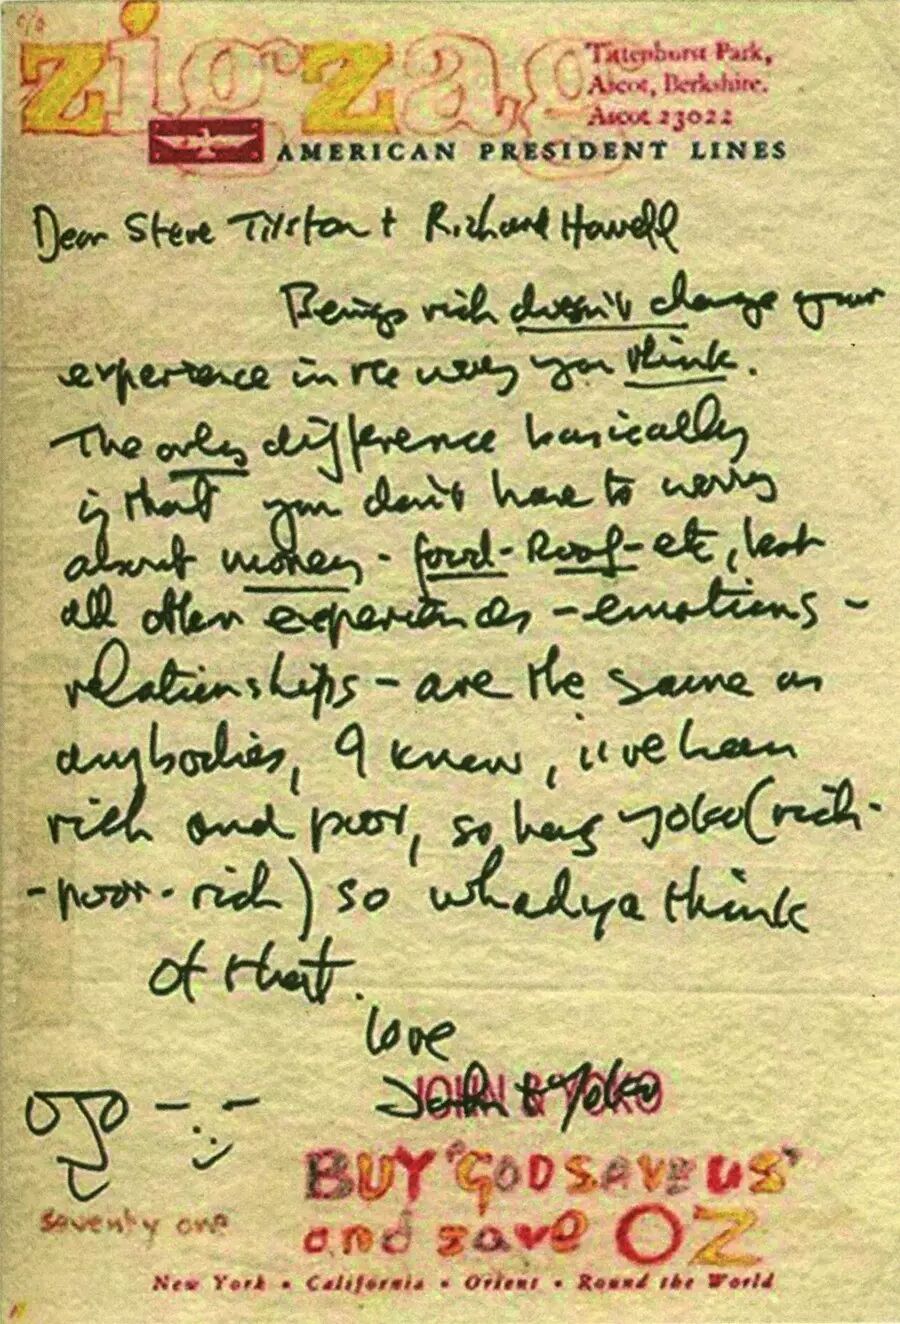 c/o
zigzag
Tittenhurst Park,
Ascot, Berkshire.
Ascot 23022
AMERICAN PRESIDENT LINES
Dear Steve Tilston + Richard Howell
Being rich doesn't change your
experience in the way you think.
The only difference basically
is that you don't have to worry
about money - food - Roof - etc, but
all other experiences - emotions -
relationships - are the same as
anybodies, I know, i've been
rich and poor, so has yoko (rich -
- poor - rich) so whadya think
of that.
love
John & Yoko
JOHN & YOKO
BUY "GOD SAVE US"
and save OZ
seventy one
New York • California • Orient • Round the World